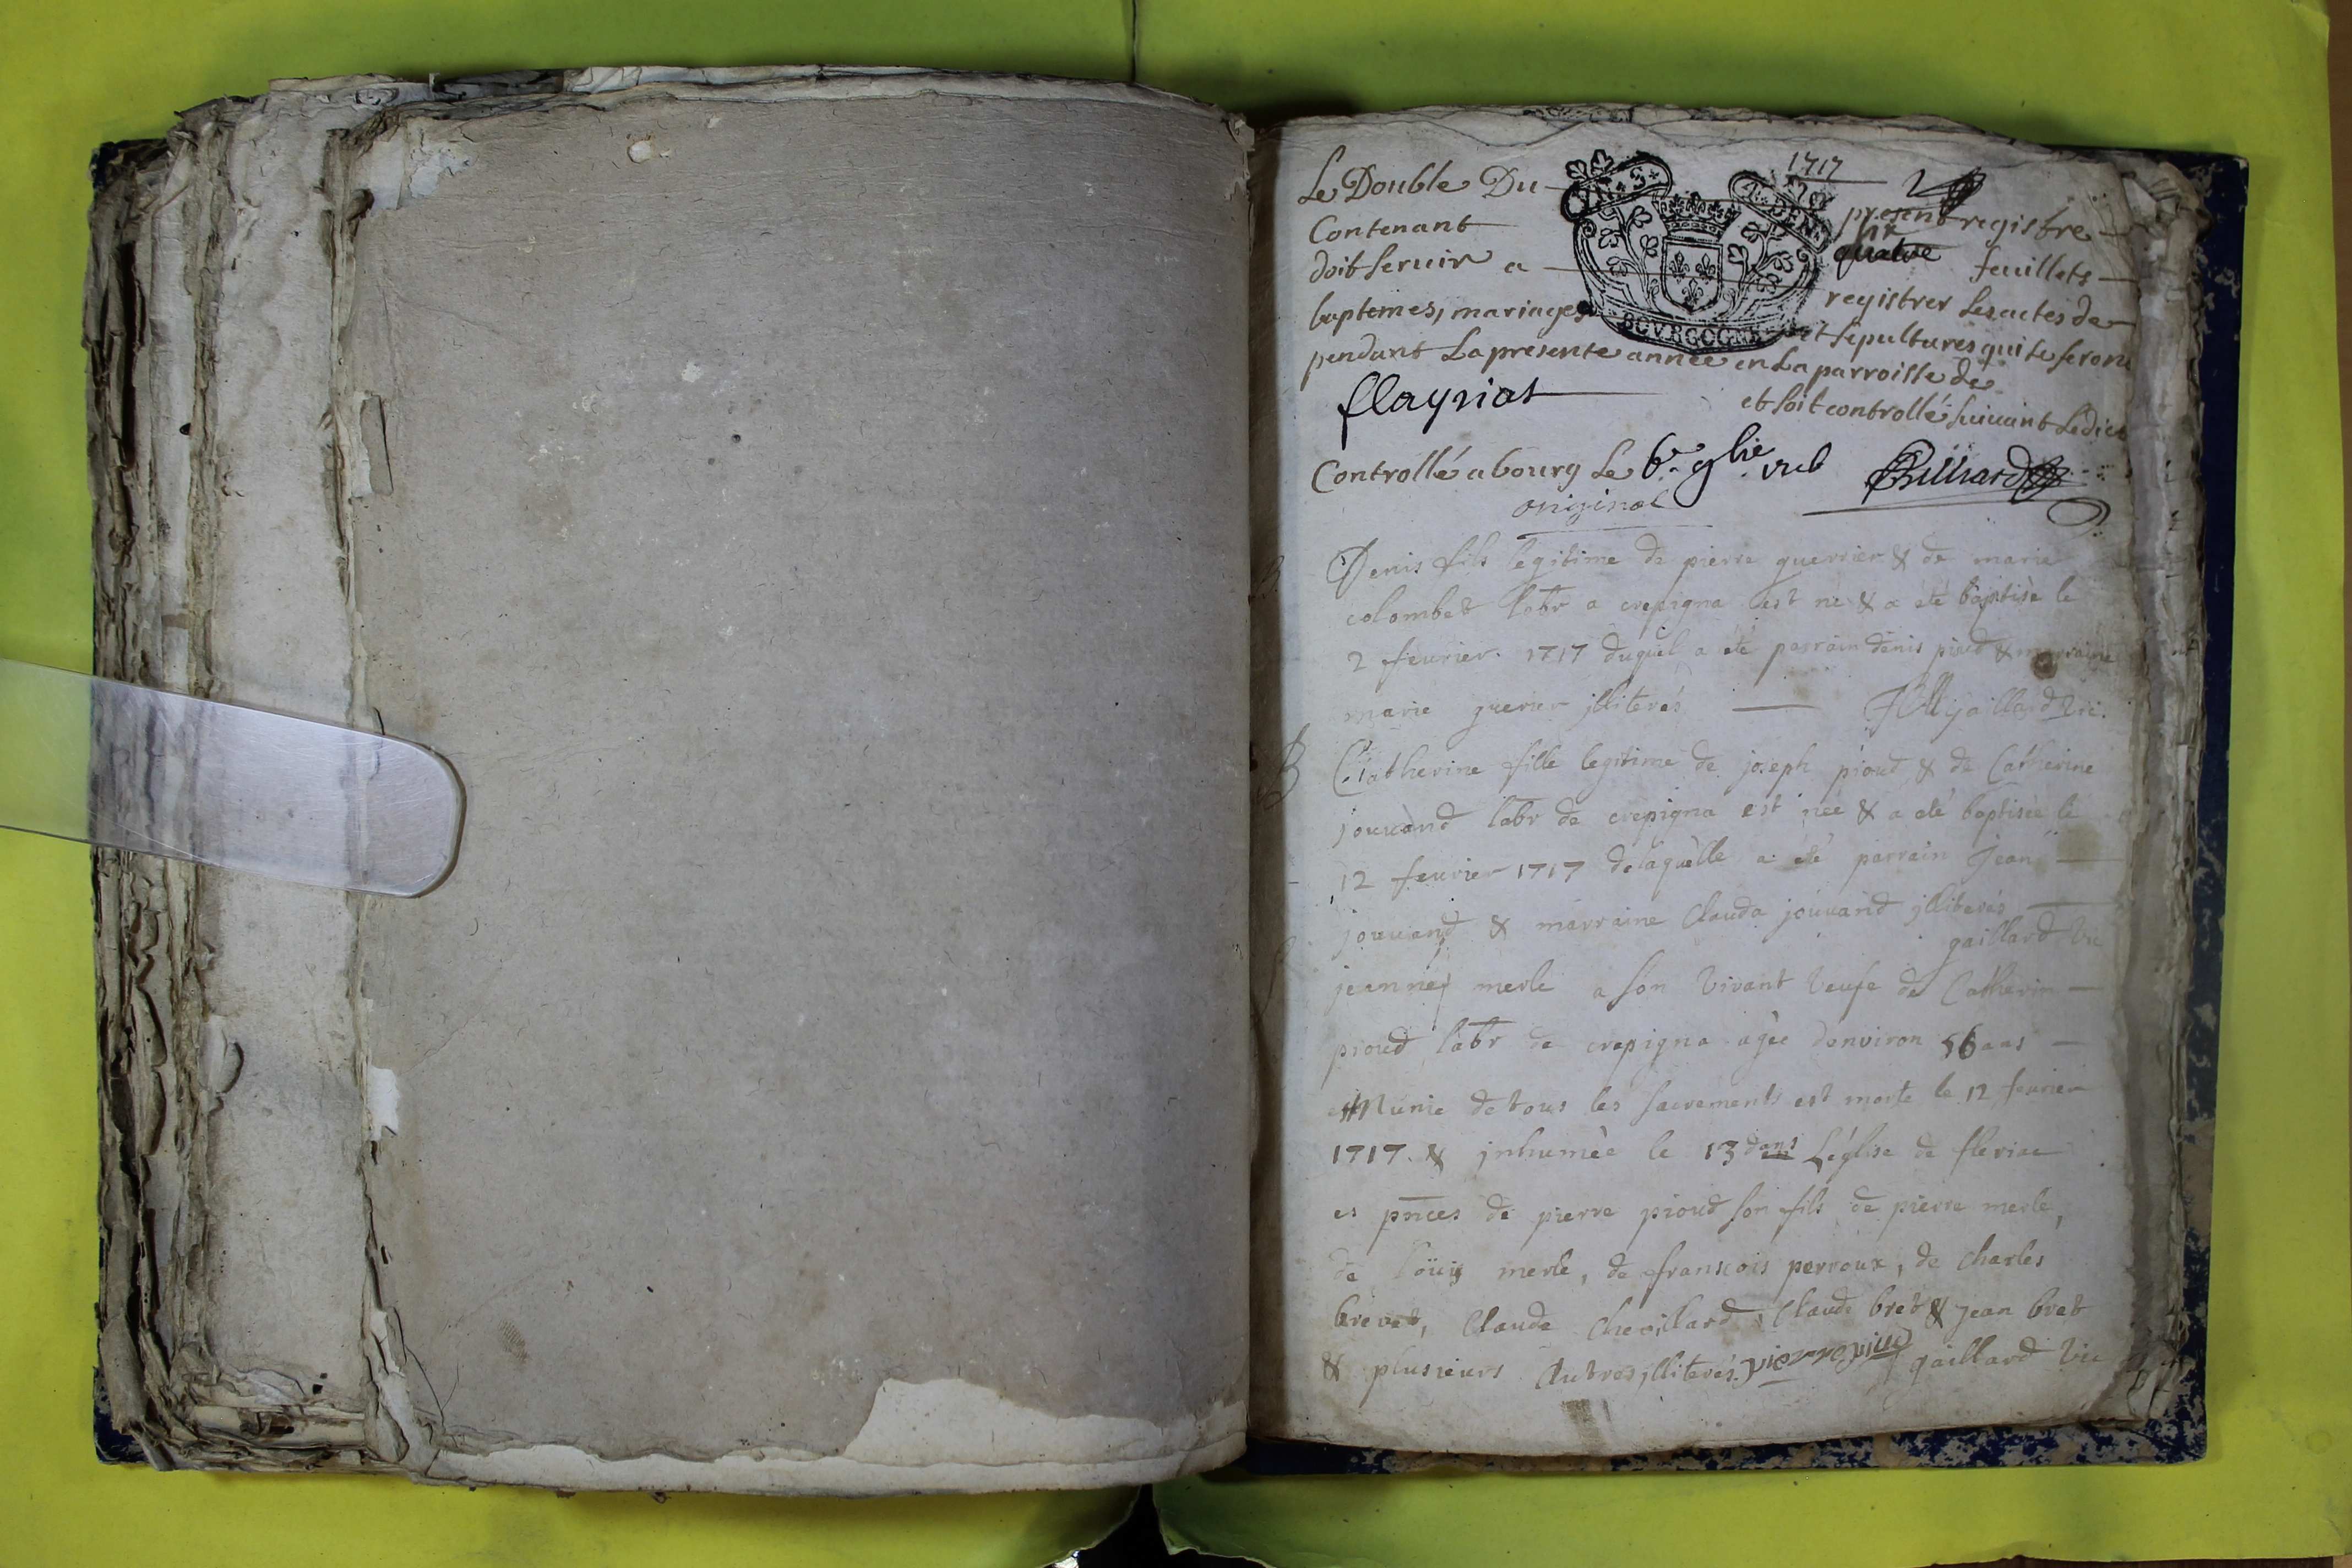 1717
Le Double Du present registre
Contenant six quatre feuillets
doit servir a registrer Les actes de
baptemes, mariages et sepultures qui se feront
pendant La presente année en La parroisse de
flayriat et soit controllé suivant Ledict
Controllé a bourg Le
original
BOURGOGNE
Denis fils legitime de pierre guerrier & de marie
colombet labr a crepigna est né & a eté baptisé le
2 feurier 1717 duquel a eté parrain denis pioud & marraine
marie guerier jlliterés gaillard vic.
B
Catherine fille legitime de joseph pioud & de Catherine
jouuand labr de crepigna est née & a eté baptisée le
12 feurier 1717 delaquelle a eté parrain Jean
jouuand & marraine Clauda jouuand jlliterés
gaillard vic
jeanne merle a son vivant veufe de Catherin
pioud labr de crepigna agée denviron 56 ans
Munie de tous les sacrements est morte le 12 feurier
1717 & jnhumée le 13 dans L'églse de fleriac
es pnces de pierre pioud son fils de pierre merle,
de loüis merle, de francois perroux, de charles
brevet, Claude chevillard, Claude bret & jean bret
& plusieurs Autres jlliterés. pierre piud gaillard vic